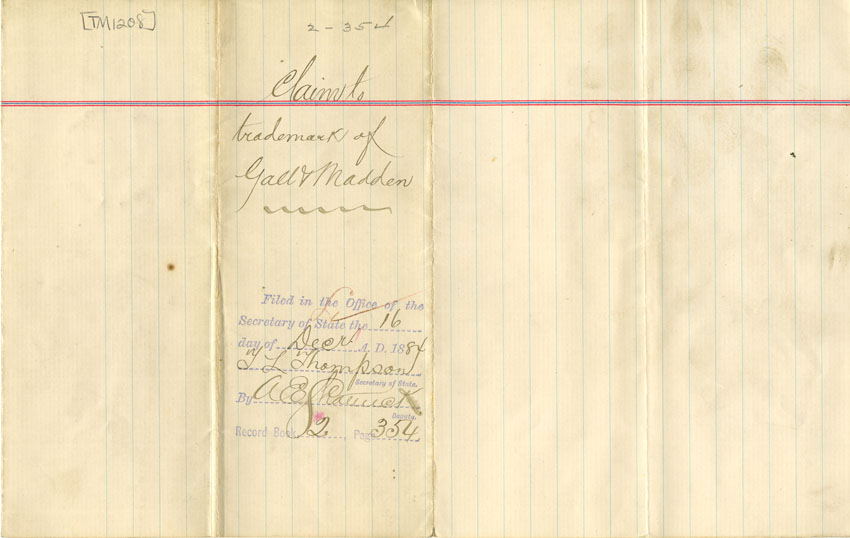 [TM1208]
2-354
Claim to
trademark of
Gall & Madden
Filed in the Office of the
Secretary of State the 16
day of Decr A.D. 1884
T L Thompson
Secretary of State.
By A E
Deputy.
Record Book 2, Page 354